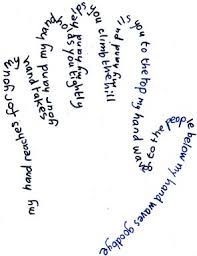 my hand reaches for your
hand my hand takes your hand my hand
holds you tightly
my hand helps
you climb the hill
my hand pulls
you to the top my hand wav
es to the peop
le below my hand waves goodbye